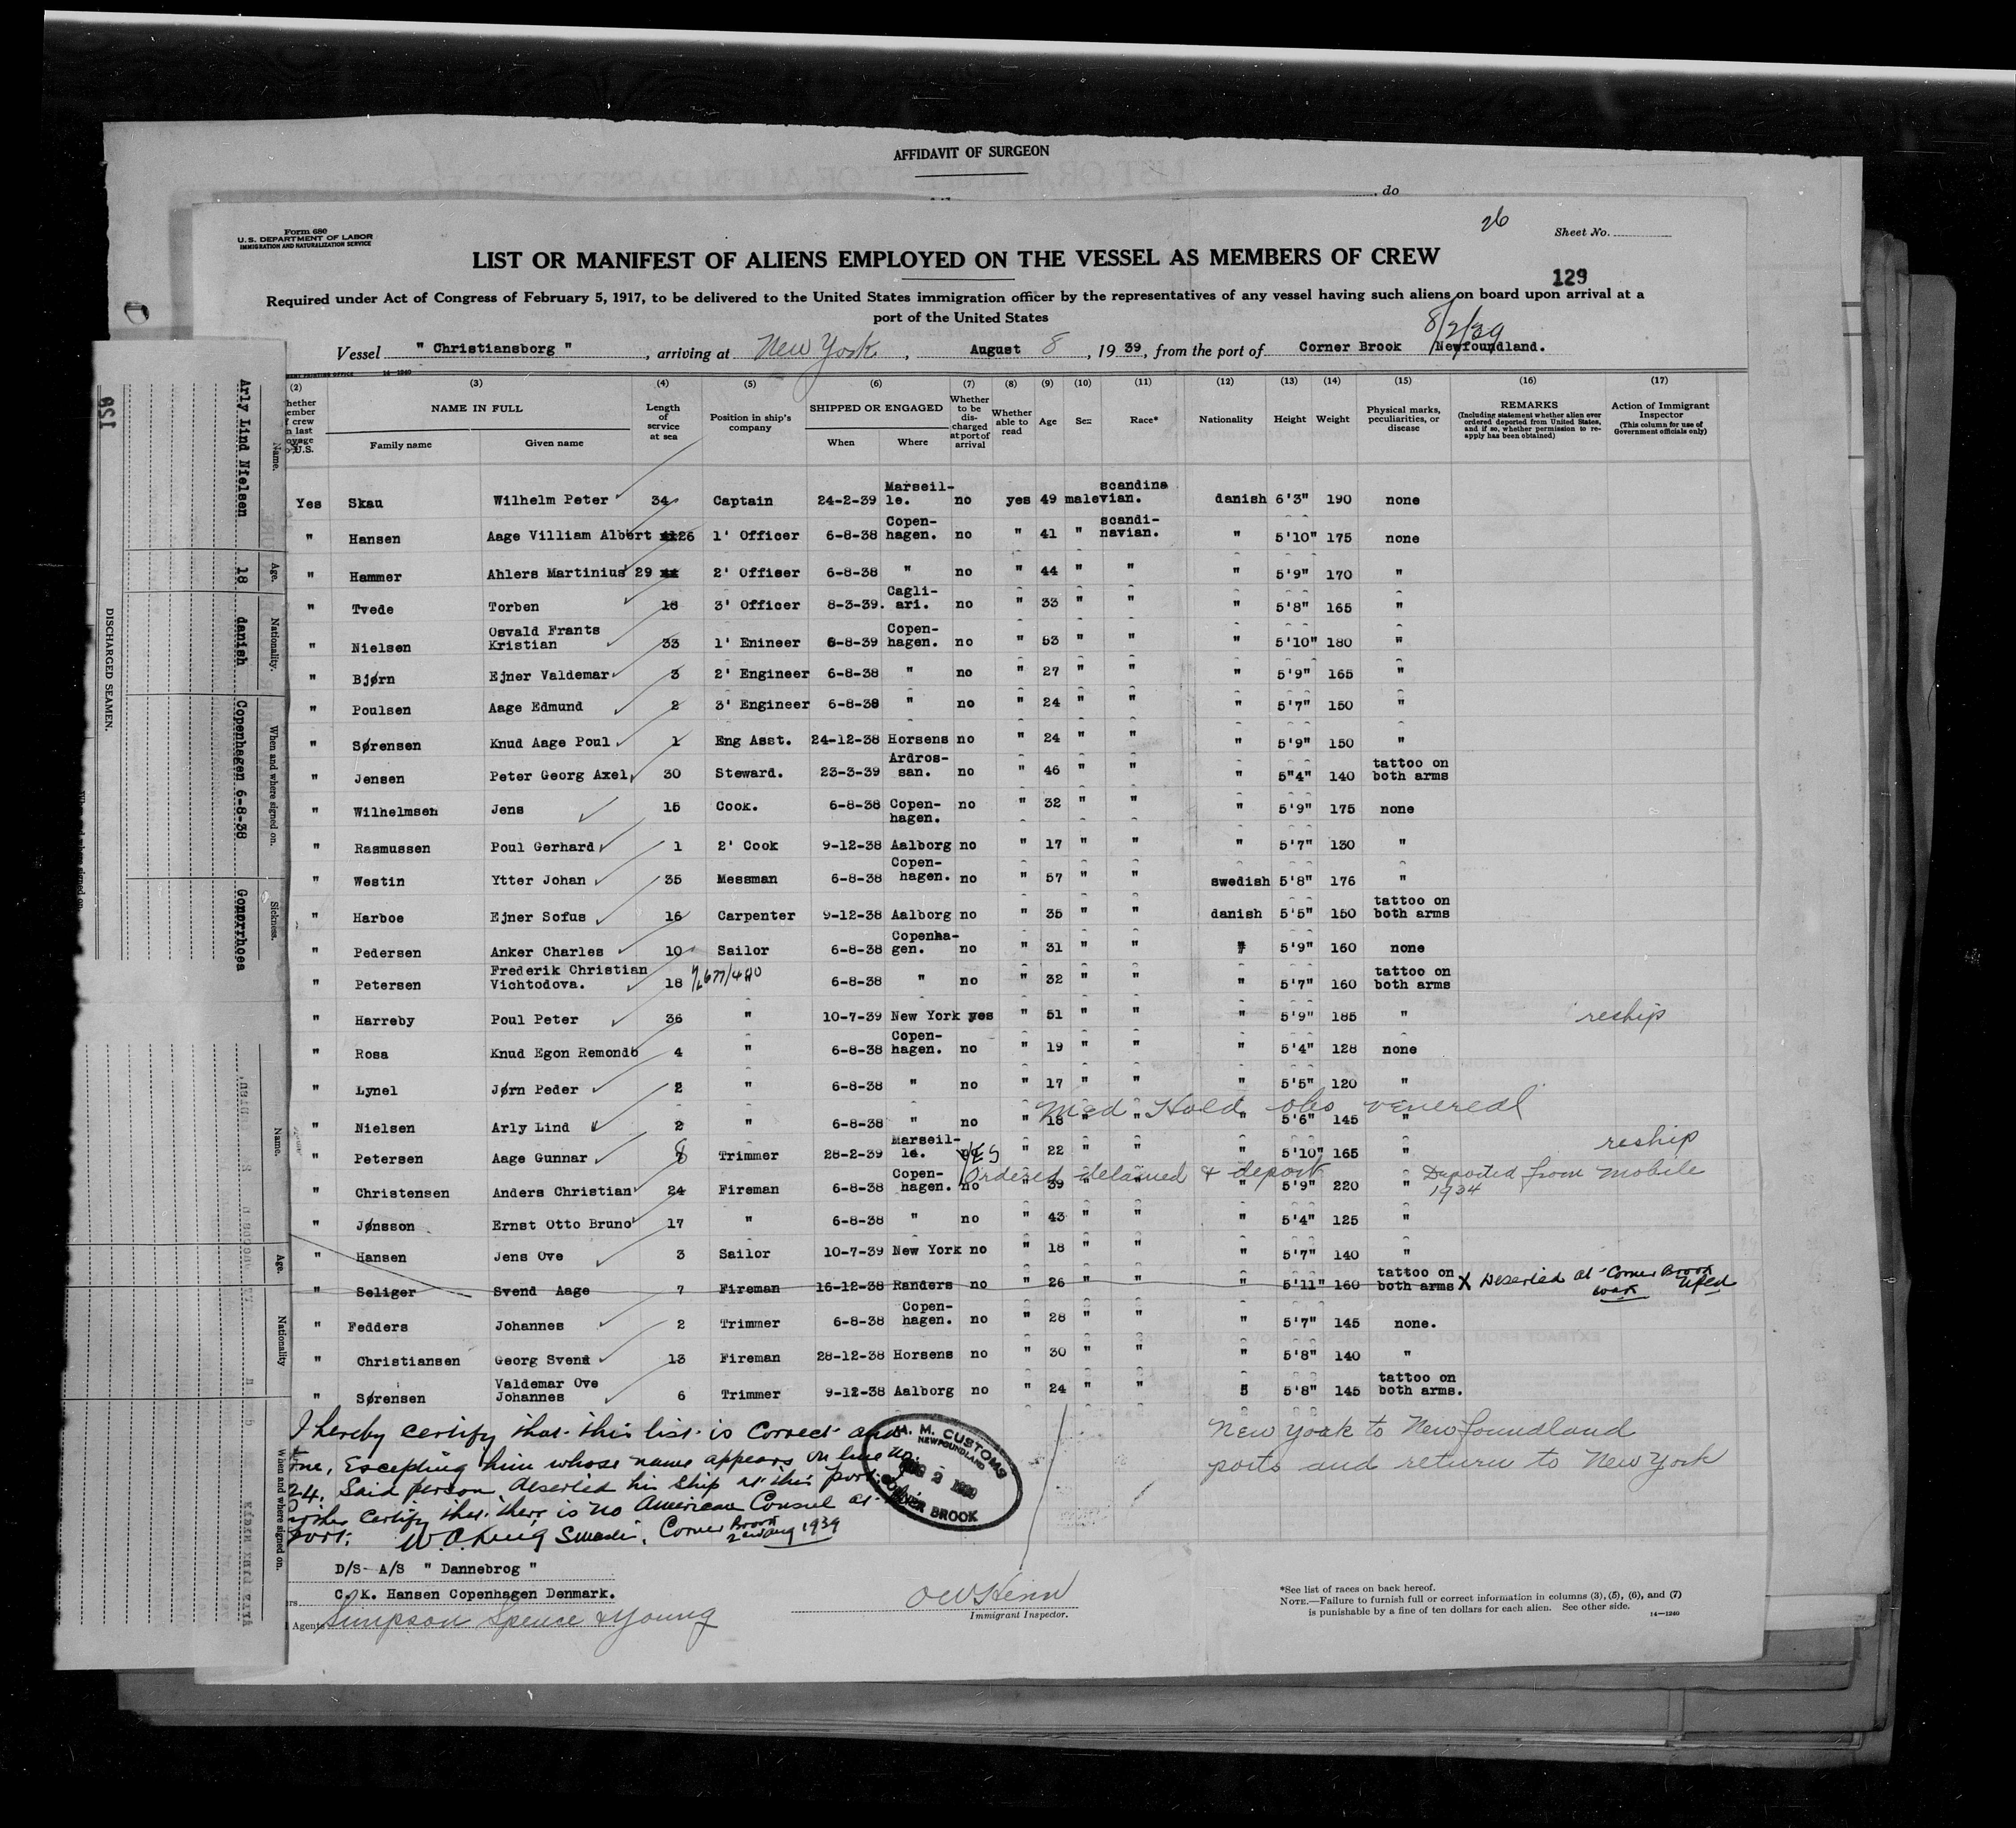 AFFIDAVIT OF SURGEON
do
26
Form 680
U.S. DEPARTMENT OF LABOR
IMMIGRATION AND NATURALIZATION SERVICE
Sheet No.
LIST OR MANIFEST OF ALIENS EMPLOYED ON THE VESSEL AS MEMBERS OF CREW
129
Required under Act of Congress of February 5, 1917, to be delivered to the United States immigration officer by the representatives of any vessel having such aliens on board upon arrival at a
port of the United States
8/2/39
Vessel " Christiansborg ", arriving at New York, August 8, 1939, from the port of Corner Brook Newfoundland.
14-1240
(2) (3) (4) (5) (6) (7) (8) (9) (10) (11) (12) (13) (14) (15) (16) (17)
NAME IN FULL
Family name Given name
Length of service at sea
Position in ship's company
SHIPPED OR ENGAGED
When Where
Whether to be discharged at port of arrival
Whether able to read
Age
Sex
Race*
Nationality
Height
Weight
Physical marks, peculiarities, or disease
REMARKS
(Including statement whether alien ever ordered deported from United States, and if so, whether permission to reapply has been obtained)
Action of Immigrant Inspector
(This column for use of Government officials only)
Yes Skau Wilhelm Peter 34 Captain 24-2-39 Marseille. no yes 49 male scandinavian. danish 6'3" 190 none
" Hansen Aage Villiam Albert 26 1' Officer 6-8-38 Copenhagen. no " 41 " scandinavian. " 5'10" 175 none
" Hammer Ahlers Martinius 29 2' Officer 6-8-38 " no " 44 " " " 5'9" 170 "
" Tvede Torben 18 3' Officer 8-3-39. Cagliari. no " 33 " " " 5'8" 165 "
" Nielsen Osvald Frants Kristian 33 1' Enineer 6-8-39 Copenhagen. no " 53 " " " 5'10" 180 "
" Bjørn Ejner Valdemar 3 2' Engineer 6-8-38 " no " 27 " " " 5'9" 165 "
" Poulsen Aage Edmund 2 3' Engineer 6-8-38 " no " 24 " " " 5'7" 150 "
" Sørensen Knud Aage Poul 1 Eng Asst. 24-12-38 Horsens no " 24 " " " 5'9" 150 "
" Jensen Peter Georg Axel 30 Steward. 23-3-39 Ardrossan. no " 46 " " " 5"4" 140 tattoo on both arms
" Wilhelmsen Jens 15 Cook. 6-8-38 Copenhagen. no " 32 " " " 5'9" 175 none
" Rasmussen Poul Gerhard 1 2' Cook 9-12-38 Aalborg no " 17 " " " 5'7" 130 "
" Westin Ytter Johan 35 Messman 6-8-38 Copenhagen. no " 57 " " swedish 5'8" 176 "
" Harboe Ejner Sofus 16 Carpenter 9-12-38 Aalborg no " 35 " " danish 5'5" 150 tattoo on both arms
" Pedersen Anker Charles 10 Sailor 6-8-38 Copenhagen. no " 31 " " " 5'9" 160 none
" Petersen Frederik Christian Vichtodova. 18 6-8-38 " no " 32 " " " 5'7" 160 tattoo on both arms
" Harreby Poul Peter 36 " 10-7-39 New York yes " 51 " " " 5'9" 185 " reship
" Rosa Knud Egon Remondo 4 " 6-8-38 Copenhagen. no " 19 " " " 5'4" 128 none
" Lynel Jørn Peder 2 " 6-8-38 " no " 17 " " " 5'5" 120 "
Med Hold obs venereal
" Nielsen Arly Lind 2 " 6-8-38 " no " 18 " " " 5'6" 145 "
" Petersen Aage Gunnar 8 Trimmer 28-2-39 Marseille. YES " 22 " " " 5'10" 165 " reship
Ordered detained & deport
" Christensen Anders Christian 24 Fireman 6-8-38 Copenhagen. no " 39 " " " 5'9" 220 " Deported from Mobile 1934
" Jønsson Ernst Otto Bruno 17 " 6-8-38 " no " 43 " " " 5'4" 125 "
" Hansen Jens Ove 3 Sailor 10-7-39 New York no " 18 " " " 5'7" 140 "
" Seliger Svend Aage 7 Fireman 16-12-38 Randers no " 26 " " " 5'11" 160 tattoo on both arms X Deserted at Corner Brook Nfld
" Fedders Johannes 2 Trimmer 6-8-38 Copenhagen. no " 28 " " " 5'7" 145 none.
" Christiansen Georg Svend 13 Fireman 28-12-38 Horsens no " 30 " " " 5'8" 140 "
" Sørensen Valdemar Ove Johannes 6 Trimmer 9-12-38 Aalborg no " 24 " " 5 5'8" 145 tattoo on both arms.
I hereby certify that this list is correct and
true, Excepting him whose name appears on line no.
24. Said person deserted his ship at this port. I
certify that there is no American Consul at
port.
Corner Brook
2nd Aug 1939
H. M. CUSTOMS
NEWFOUNDLAND
AUG 2 1939
CORNER BROOK
New York to Newfoundland
ports and return to New York
D/S- A/S " Dannebrog "
C. K. Hansen Copenhagen Denmark.
Agents Simpson Spence & Young
Immigrant Inspector.
*See list of races on back hereof.
NOTE.—Failure to furnish full or correct information in columns (3), (5), (6), and (7)
is punishable by a fine of ten dollars for each alien. See other side.
14-1240
DISCHARGED SEAMEN.
Name. Age. Nationality. When and where signed on. Sickness.
Arly Lind Nielsen 18 danish Copenhagen 6-8-38 Gonorrhoea
Name. Age. Nationality When and where signed on.